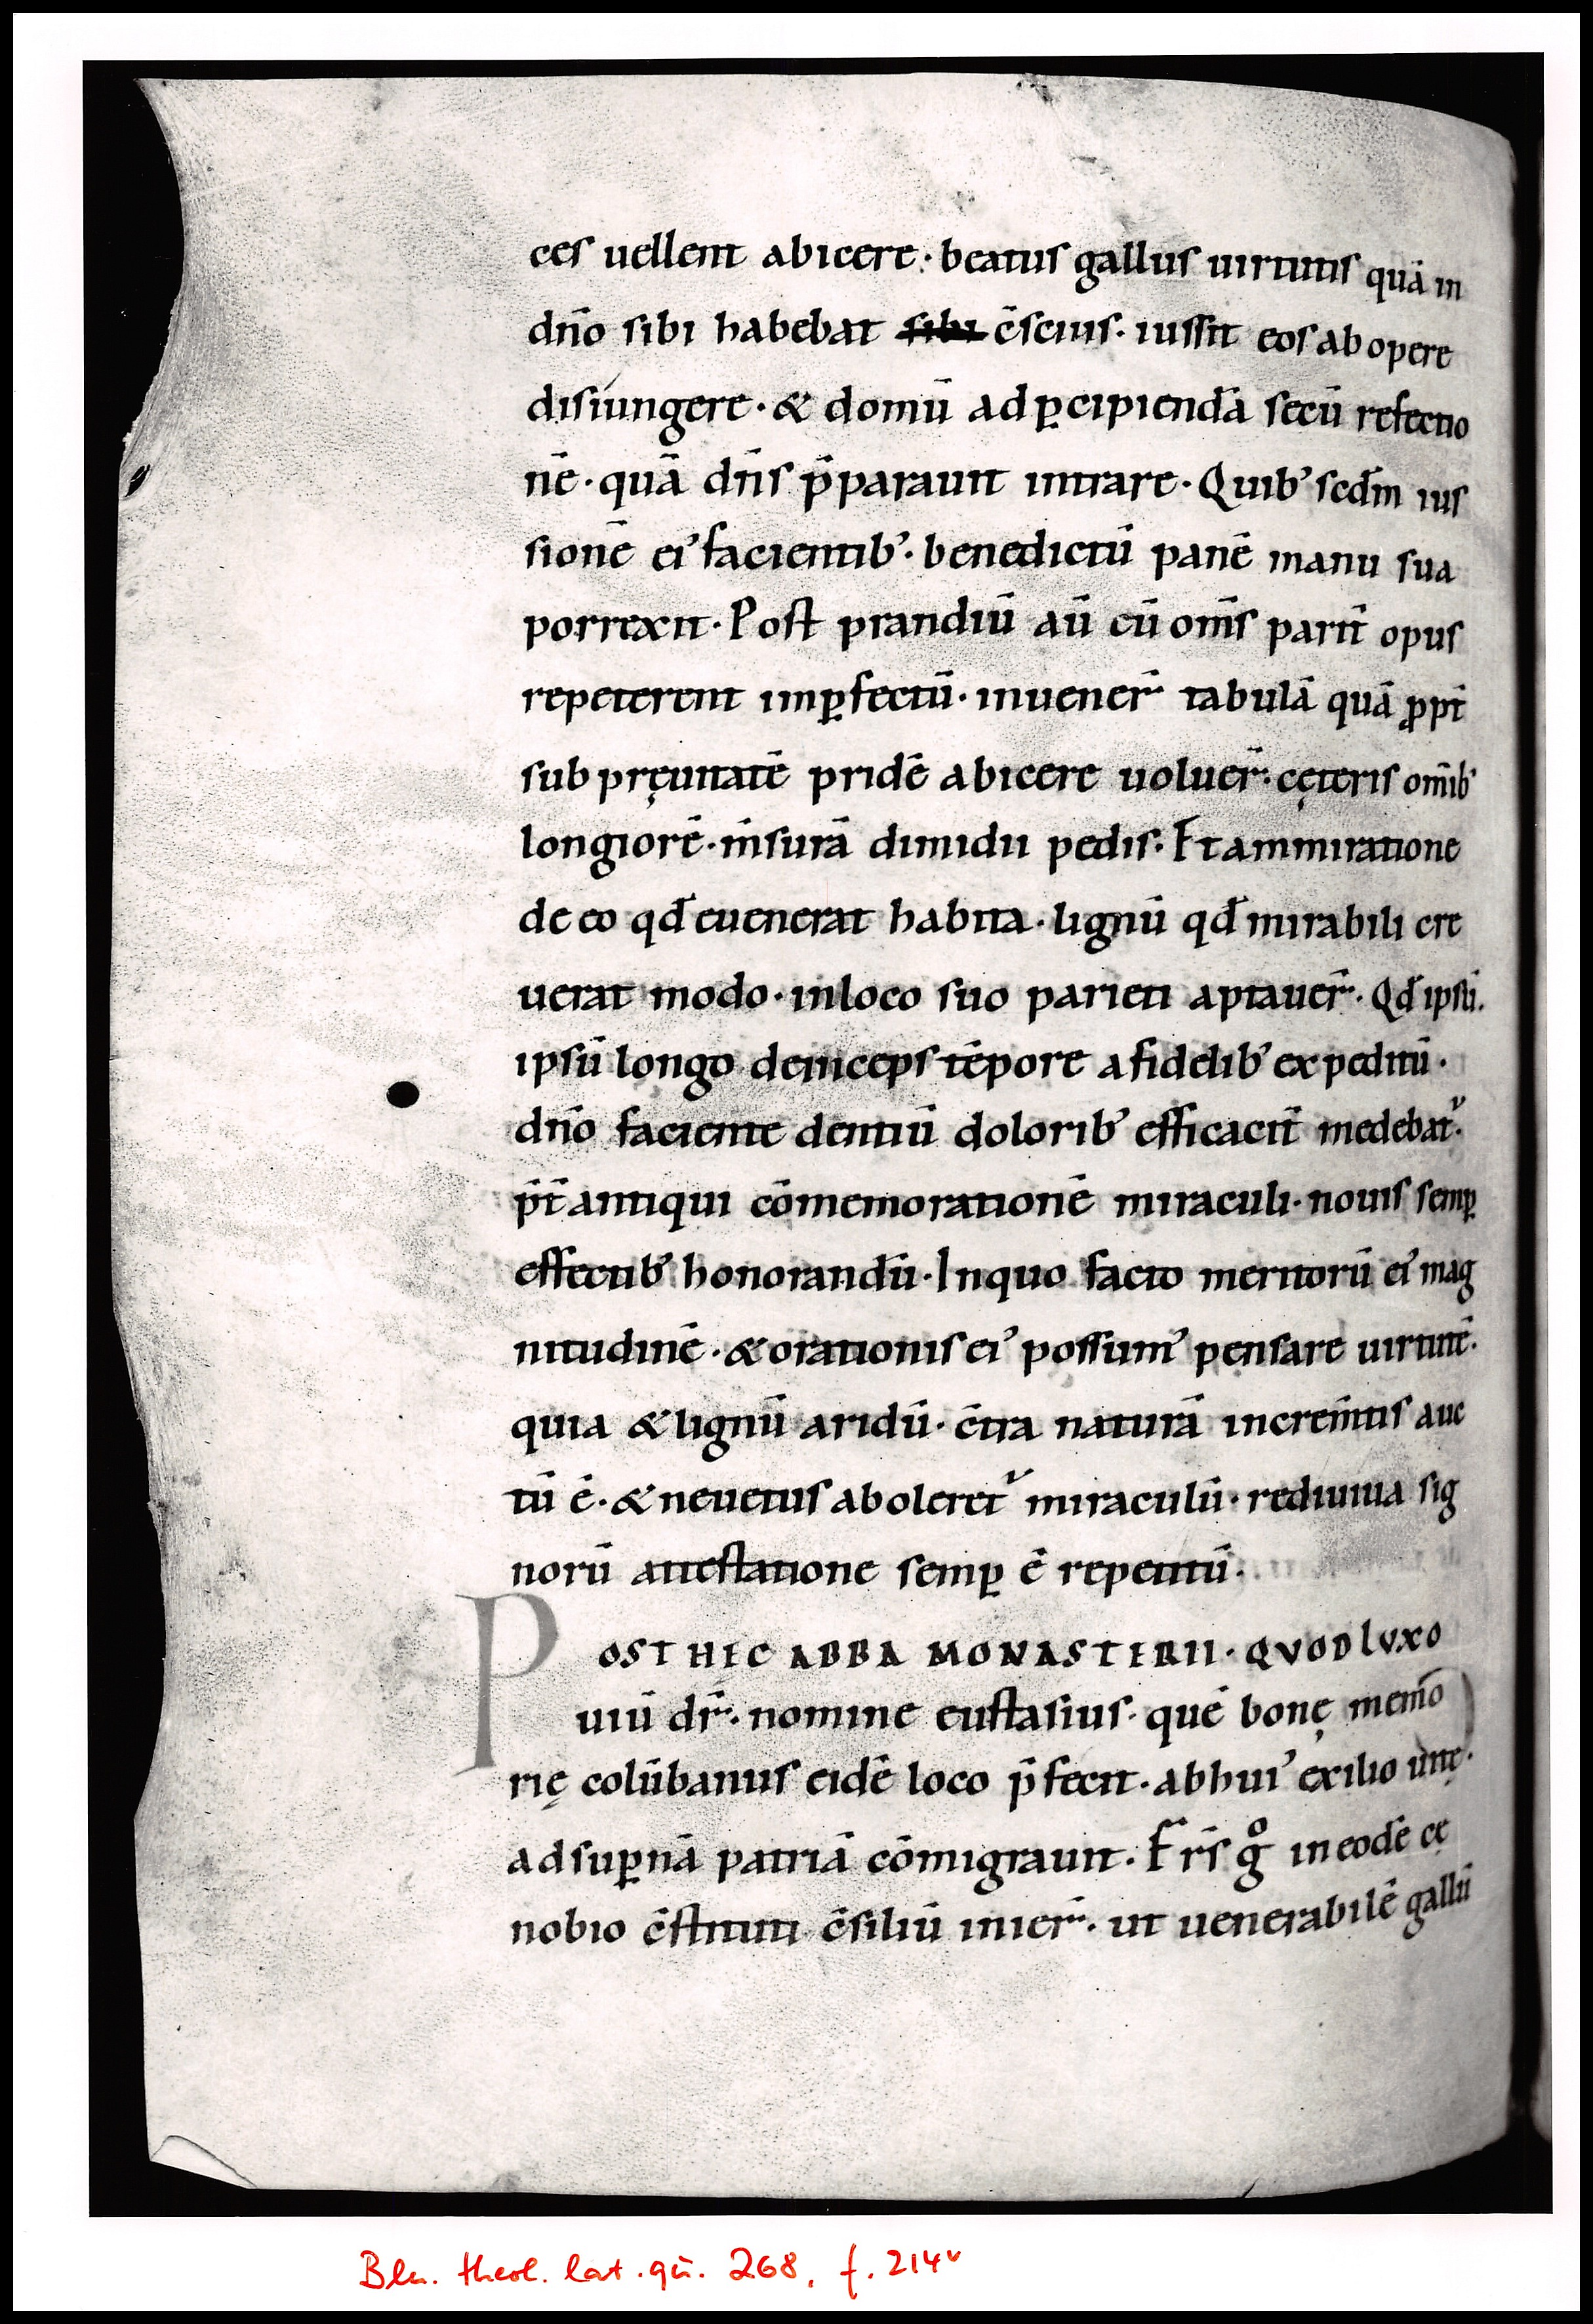 ces uellent abicere· beatus gallus uirtutis quā in
dn̄o sibi habebat sibi c̄scius· iussit eos ab opere
disiungere· & domū ad ꝑcipiendā secū refectio
nē· quā dn̄s p̄parauit intrare· Quibꝰ scdm̄ ius
sionē eiꝰ facientibꝰ· benedictū panē manu sua
porrexit· Post prandiū aū cū om̄s parit̄ opus
repeterent imꝑfectū· inuener̄ tabulā quā ꝓpt̄
sub pręuitatē pridē abicere uoluer̄· cęteris om̄ibꝰ
longiorē· m̄surā dimidii pedis· Et ammiratione
de eo qd̄ euenerat habita· lignū qd̄ mirabili cre
uerat modo· in loco suo parieti aptauer̄· Qd̄ ipsū·
ipsū longo deinceps tēpore a fidelibꝰ expeditū·
dn̄o faciente dentiū doloribꝰ efficacit̄ medebat᷑·
p̄t̄ antiqui cōmemorationē miraculi· nouis semꝑ
effectibꝰ honorandū· In quo facto meritorū eiꝰ mag
nitudinē· & orationis eiꝰ possumꝰ pensare uirtutē·
quia & lignū aridū· c̄tra naturā increm̄tis auc
tū ē· & ne uetus aboleret᷑ miraculū· rediuiua sig
norū attestatione semꝑ ē repetitū·
POST HEC ABBA MONASTERII· QVOD LVXO
uiū dr̄· nomine eustasius· quē bonę memo
rię colūbanus eidē loco p̄fecit· ab huiꝰ exilio uitę·
ad suꝑnā patriā cōmigrauit· Fr̄s gͦ in eodē cę
nobio c̄stituti c̄siliū inier̄· ut uenerabilē gallū
Bln. theol. lat. qu. 268, f. 214v